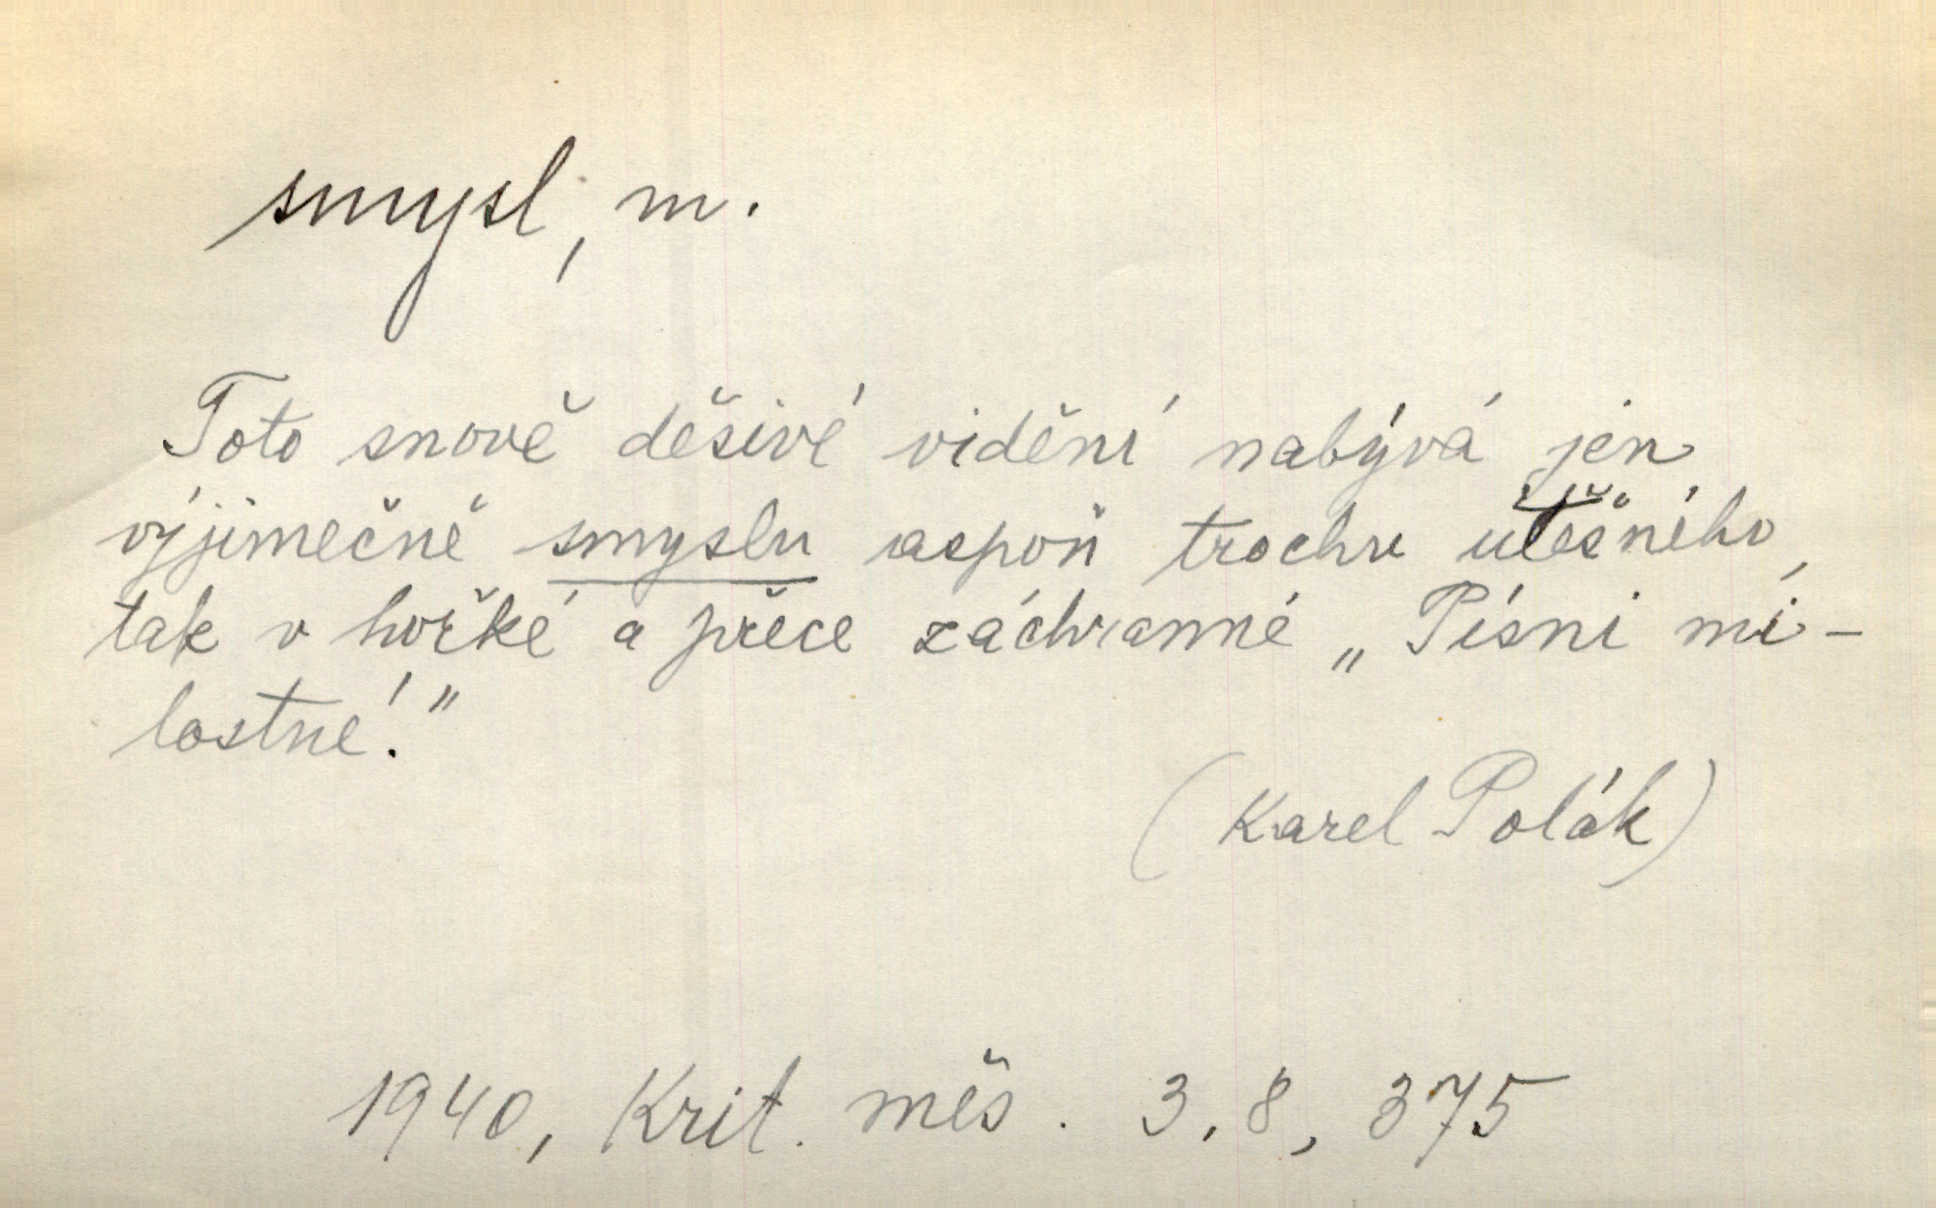 smysl, m.
Toto snově děsivé vidění nabývá jen
výjimečně smyslu aspoň trochu útěšného,
tak v hořké a přece záchranné „Písni mi-
lostné."
(Karel Polák)
1940, Krit. měs. 3, 8, 375